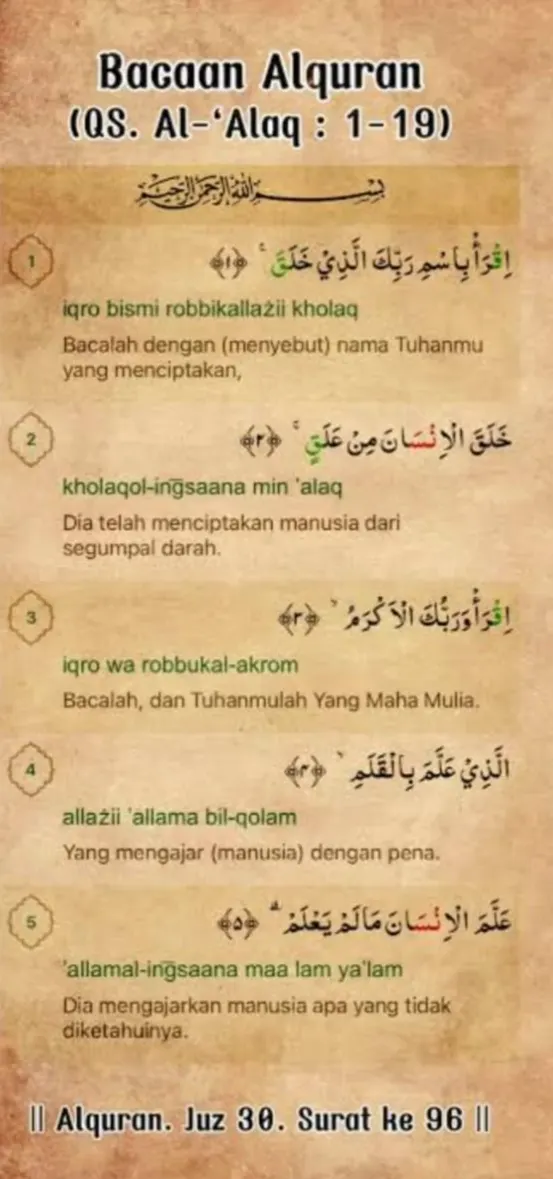 Bacaan Alquran
(QS. Al-‘Alaq : 1-19)
بِسْمِ اللّٰهِ الرَّحْمٰنِ الرَّحِيْمِ
1
اِقْرَأْ بِاسْمِ رَبِّكَ الَّذِيْ خَلَقَۚ ﴿١﴾
iqro bismi robbikallażii kholaq
Bacalah dengan (menyebut) nama Tuhanmu
yang menciptakan,
2
خَلَقَ الْاِنْسَانَ مِنْ عَلَقٍۚ ﴿٢﴾
kholaqol-ing̅saana min 'alaq
Dia telah menciptakan manusia dari
segumpal darah.
3
اِقْرَأْ وَرَبُّكَ الْاَكْرَمُۙ ﴿٣﴾
iqro wa robbukal-akrom
Bacalah, dan Tuhanmulah Yang Maha Mulia.
4
الَّذِيْ عَلَّمَ بِالْقَلَمِۙ ﴿٣﴾
allażii 'allama bil-qolam
Yang mengajar (manusia) dengan pena.
5
عَلَّمَ الْاِنْسَانَ مَا لَمْ يَعْلَمْۗ ﴿٥﴾
'allamal-ing̅saana maa lam ya'lam
Dia mengajarkan manusia apa yang tidak
diketahuinya.
|| Alquran. Juz 30. Surat ke 96 ||